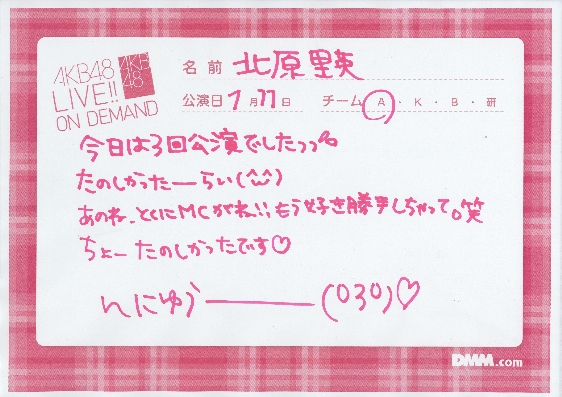 AKB48
LIVE!!
ON DEMAND
AKB
48
名前 北原里英
公演日 1月11日 チーム A・K・B・研
今日は3回公演でしたっっ
たのしかったーらい(^^)
あのね、とくにMCがね!!もう好き勝手しちゃって。笑
ちょーたのしかったです♡
んにゅう――(０３０)♡
DMM.com